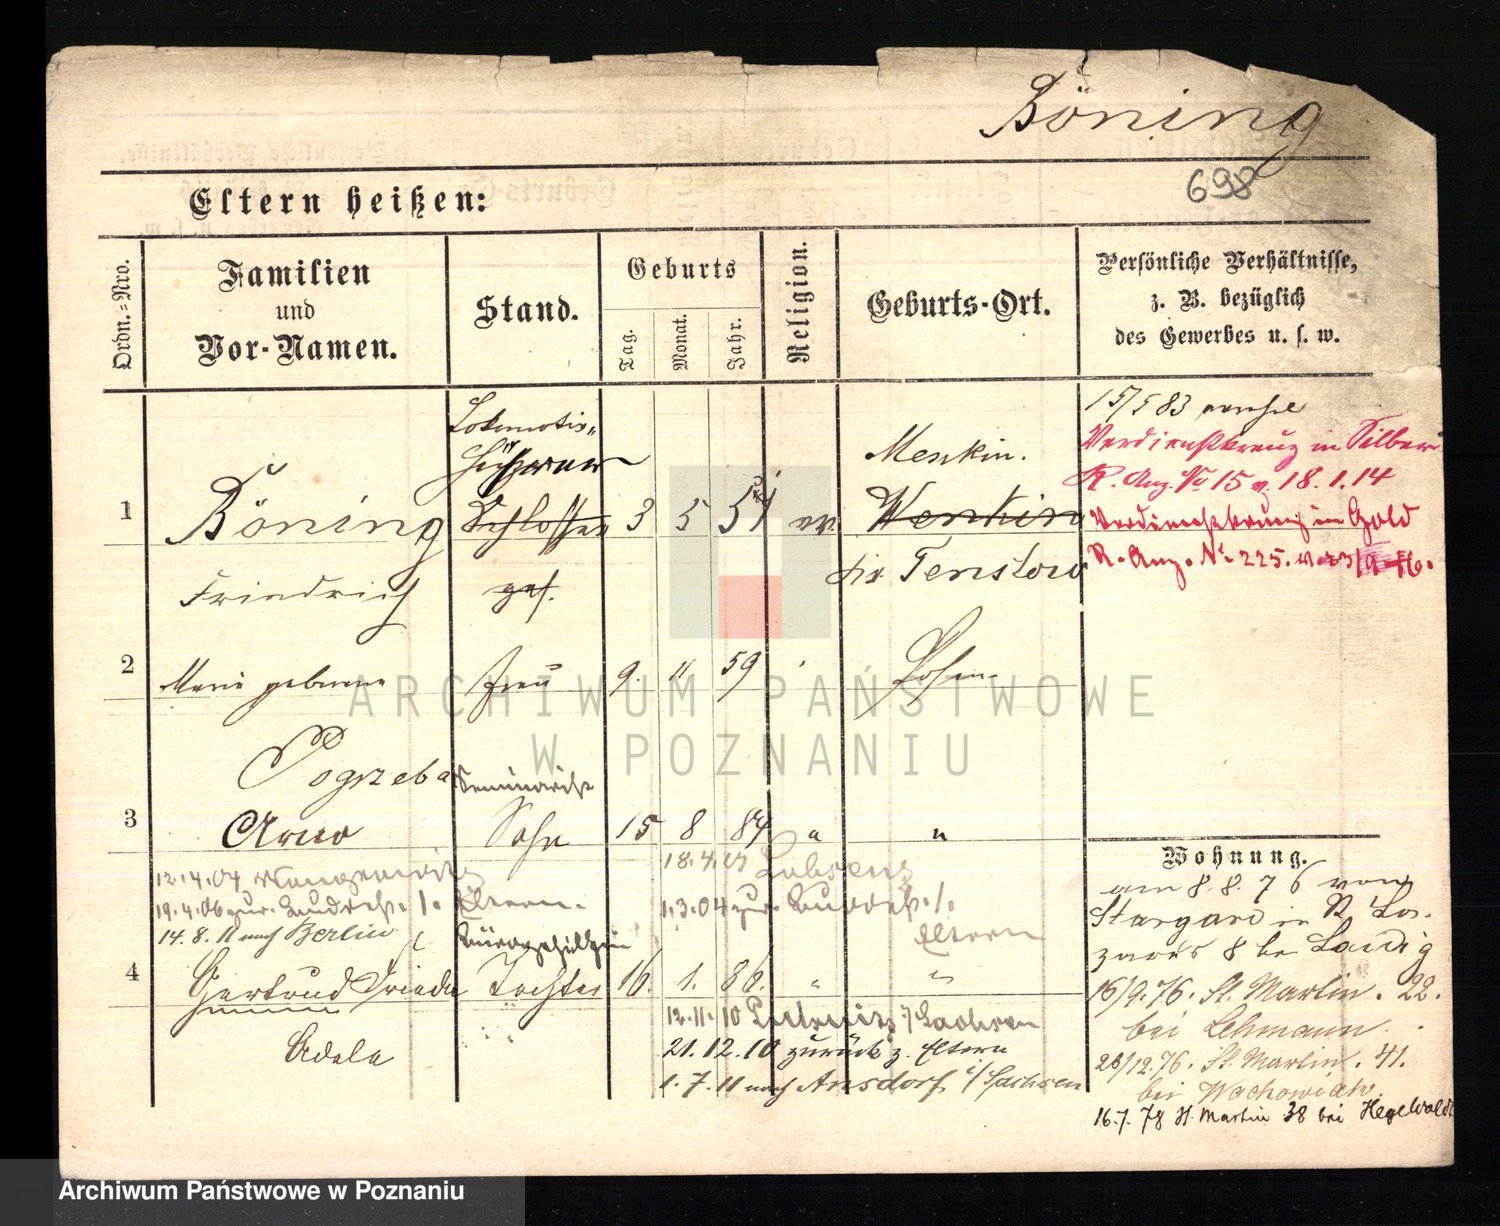 Böning
698
Eltern heißen:
Ordn.=Nro.
Familien
und
Vor-Namen.
Stand.
Geburts
Tag.
Monat.
Jahr.
Religion.
Geburts-Ort.
Persönliche Verhältnisse,
z. B. bezüglich
des Gewerbes u. s. w.
1
Böning
Friedrich
Lokomotiv-
Schlosser
3 5 51 ev.
Menkin.
Wenkin
Verdienstkreuz in Silber
R. Anz. No 15 v. 18.1.14
Verdienstkreuz in Gold
R. Anz. No 225.
15/5 83
2
Marie geborene
Frau
9. 11 59
Posen.
Pogrzeba
3
Arno
Seminarist
Sohn
15 8 84 "
"
12.4.04
19.4.06 zur. Eltern.
14.8.11 nach Berlin
18.4.
1.3.04 zur.
Eltern
4
Gertrud Frieda
Adele
Tochter
16. 1. 86. "
"
12.11.10 i/Sachsen
21.12.10 zurück z. Eltern
1.7.11 nach Arnsdorf i/Sachsen
Wohnung.
am 8.8.76 von
Stargard in
8 bei
16/9.76. St. Martin. 22.
bei Lehmann.
28/12.76. St. Martin. 41.
bei Wachowiak.
16.7.78 St. Martin 38 bei Hegewald
ARCHIWUM PAŃSTWOWE
W POZNANIU
Archiwum Państwowe w Poznaniu